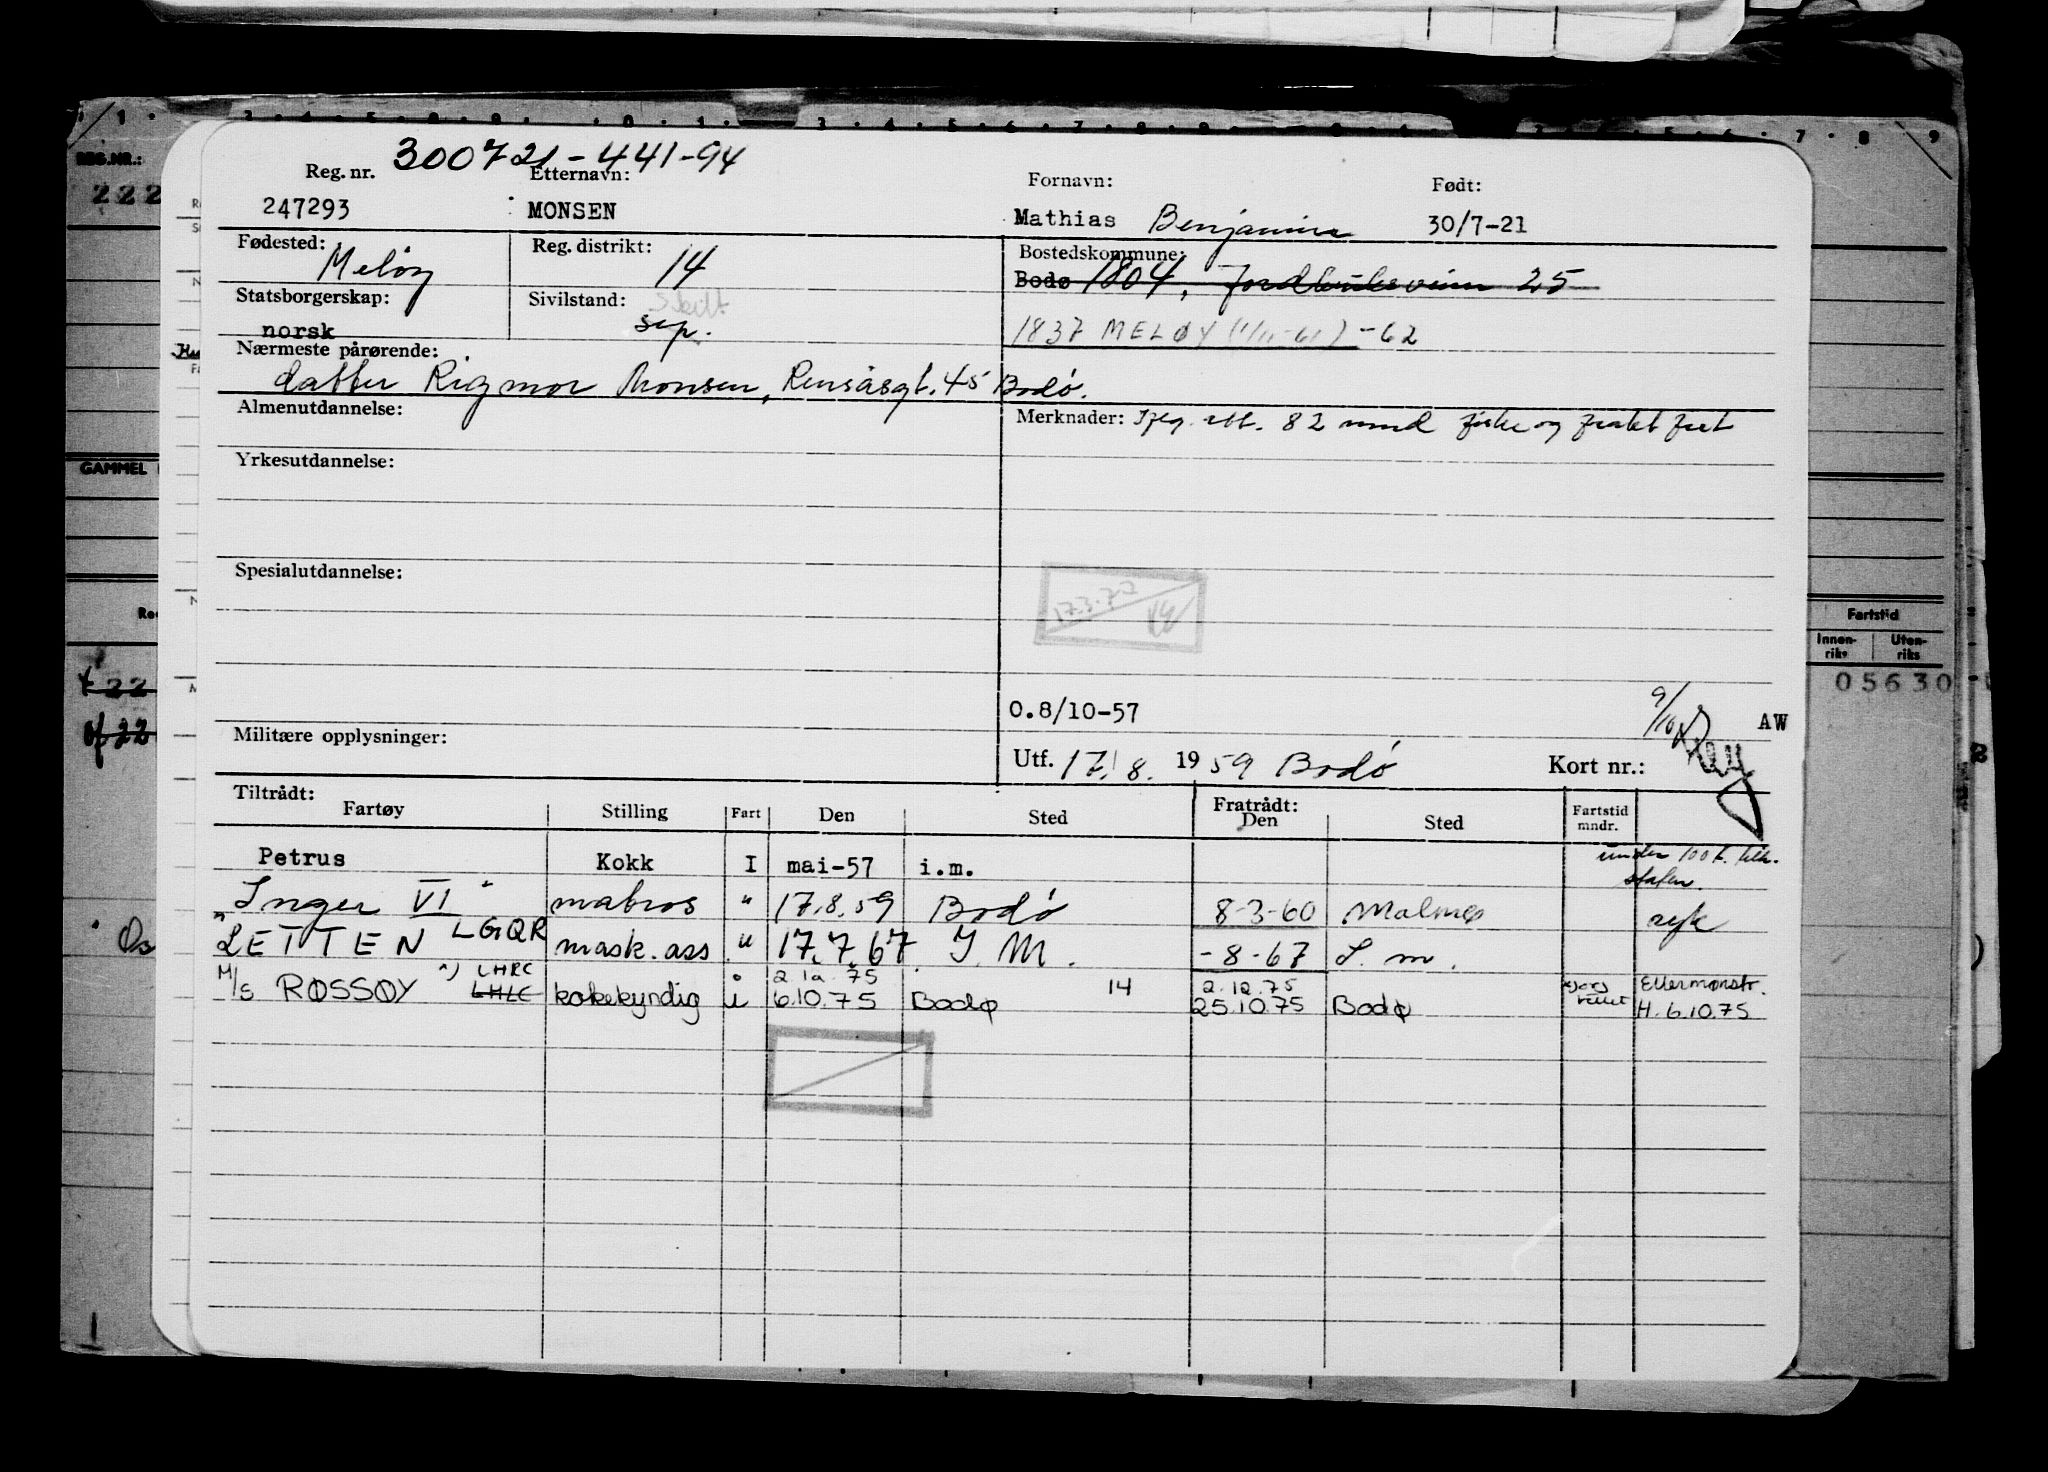 300721-441-94
Reg. nr. Etternavn: Fornavn: Født:
247293 MONSEN Mathias Benjamin 30/7-21
Fødested: Meløy Reg. distrikt: 14 Bostedskommune:
Bodø 1804, 25
Statsborgerskap: norsk Sivilstand: Skilt sep.
1837 MELØY -62
Nærmeste pårørende:
datter Rigmor Monsen, Rensåsgt. 45 Bodø.
Almenutdannelse: Merknader: 82 mnd fiske og frakt fart
Yrkesutdannelse:
Spesialutdannelse:
17.3.77
O.8/10-57 9/10 AW
Militære opplysninger: Utf. 17. 8. 1959 Bodø Kort nr.:
Tiltrådt: Fratrådt:
Fartøy Stilling Fart Den Sted Den Sted Fartstid mndr.
Petrus Kokk I mai-57 i.m. under 100
Inger VI matros " 17.8.59 Bodø 8-3-60 Malmø syk
LETTEN LGQR mask. ass " 17.7.67 I. M. -8-67 I. m.
M/S RØSSØY LHRC 2.12.75 2.12.75 Ettermønstr.
LHLC kokekyndig i 6.10.75 Bodø 14 25.10.75 Bodø H. 6.10.75
REG.NR.:
222
GAMMEL
Fartstid
Innen-riks Uten-riks
05630